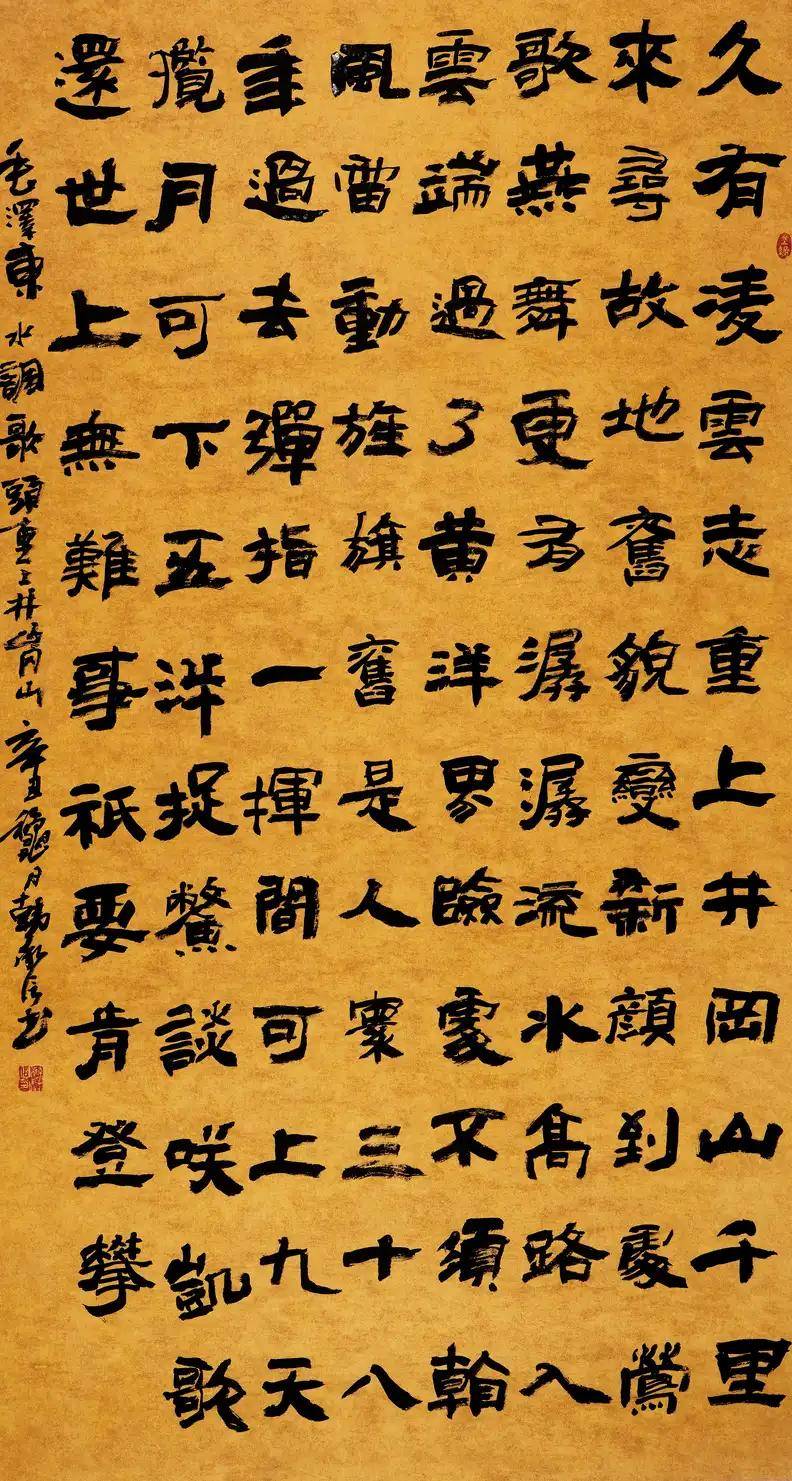 久有凌雲志重上井岡山千里
來尋故地舊貌變新顏到處鶯
歌燕舞更有潺潺流水高路入
雲端過了黄洋界險處不須看
風雷動旌旗奮是人寰三十八
年過去彈指一揮間可上九天
攬月可下五洋捉鱉談咲凱歌
還世上無難事祇要肯登攀
毛澤東水調歌頭重上井岡山辛丑龝月韓書